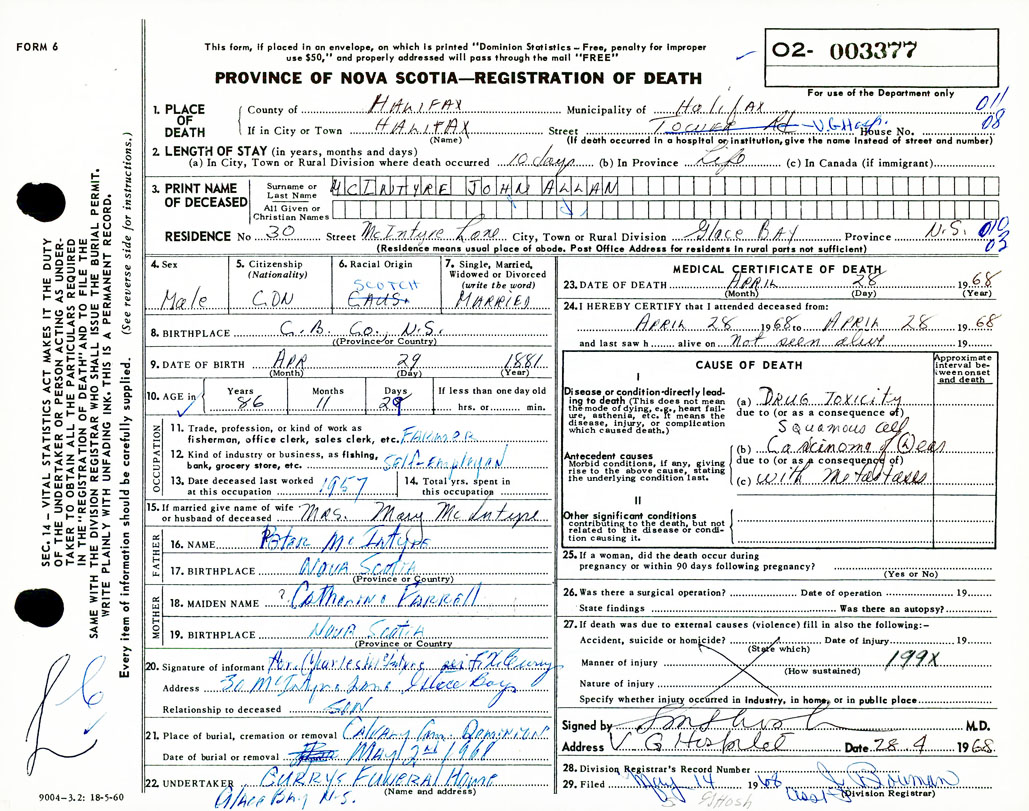 FORM 6
This form, if placed in an envelope, on which is printed "Dominion Statistics – Free, penalty for improper
use $50," and properly addressed will pass through the mail "FREE"
PROVINCE OF NOVA SCOTIA—REGISTRATION OF DEATH
O2- 003377
For use of the Department only
011
08
1. PLACE OF DEATH
County of HALIFAX Municipality of Halifax
If in City or Town HALIFAX Street Tower Rd V.G. Hosp. House No.
(Name) (If death occurred in a hospital or institution, give the name instead of street and number)
2. LENGTH OF STAY (in years, months and days)
(a) In City, Town or Rural Division where death occurred 10 days (b) In Province Life (c) In Canada (if immigrant)
3. PRINT NAME OF DECEASED
Surname or Last Name MCINTYRE JOHN ALLAN
All Given or Christian Names
RESIDENCE No 30 Street McIntyre Lane City, Town or Rural Division Glace BAY Province N.S.
010
03
(Residence means usual place of abode. Post Office Address for residents in rural parts not sufficient)
4. Sex
Male
5. Citizenship
(Nationality)
CDN
6. Racial Origin
SCOTCH
CAUS.
7. Single, Married,
Widowed or Divorced
(write the word)
MARRIED
8. BIRTHPLACE C.B. Co., N.S.
(Province or Country)
9. DATE OF BIRTH APR 29 1881
(Month) (Day) (Year)
10. AGE in
Years 86
Months 11
Days 29
If less than one day old
hrs. or min.
OCCUPATION
11. Trade, profession, or kind of work as
fisherman, office clerk, sales clerk, etc. FARMOR
12. Kind of industry or business, as fishing,
bank, grocery store, etc.
13. Date deceased last worked
at this occupation 1957
14. Total yrs. spent in
this occupation
15. If married give name of wife
or husband of deceased MRS. Mary McIntyre
FATHER
16. NAME Peter McIntyre
17. BIRTHPLACE NOVA SCOTIA
(Province or Country)
MOTHER
18. MAIDEN NAME ? Catherine Farrell
19. BIRTHPLACE NOVA SCOTIA
(Province or Country)
20. Signature of informant
Address 30 McIntyre Lane Glace Bay
Relationship to deceased SON
21. Place of burial, cremation or removal Calvary Cem. Dominion
Date of burial or removal MAY 2nd 1968
22. UNDERTAKER CURRYS FUNERAL HOME
(Name and address)
Glace Bay N.S.
9004–3.2: 18-5-60
SEC. 14 – VITAL STATISTICS ACT MAKES IT THE DUTY
OF THE UNDERTAKER OR PERSON ACTING AS UNDER-
TAKER TO OBTAIN ALL THE PARTICULARS REQUIRED
IN THE "REGISTRATION OF DEATH" AND TO FILE THE
SAME WITH THE DIVISION REGISTRAR WHO SHALL ISSUE THE BURIAL PERMIT.
WRITE PLAINLY WITH UNFADING INK. THIS IS A PERMANENT RECORD.
Every item of information should be carefully supplied. (See reverse side for instructions.)
MEDICAL CERTIFICATE OF DEATH
23. DATE OF DEATH APRIL 28 1968
(Month) (Day) (Year)
24. I HEREBY CERTIFY that I attended deceased from:
APRIL 28 1968 to APRIL 28 1968
and last saw h alive on Not seen alive 19
CAUSE OF DEATH
Approximate
interval be-
tween onset
and death
I
Disease or condition directly lead-
ing to death (This does not mean
the mode of dying, e.g., heart fail-
ure, asthenia, etc. It means the
disease, injury, or complication
which caused death.)
(a) DRUG TOXICITY
due to (or as a consequence of)
Squamous cell
Antecedent causes
Morbid conditions, if any, giving
rise to the above cause, stating
the underlying condition last.
(b) Carcinoma of (L) ear
due to (or as a consequence of)
(c) with Metastases
II
Other significant conditions
contributing to the death, but not
related to the disease or condi-
tion causing it.
25. If a woman, did the death occur during
pregnancy or within 90 days following pregnancy?
(Yes or No)
26. Was there a surgical operation? Date of operation 19
State findings Was there an autopsy?
27. If death was due to external causes (violence) fill in also the following:–
Accident, suicide or homicide? Date of injury 19
(State which)
Manner of injury 199X
(How sustained)
Nature of injury
Specify whether injury occurred in industry, in home, or in public place
Signed by M.D.
Address V.G Hospital Date 28.4 1968
28. Division Registrar's Record Number
29. Filed May 14 1968 Bowman
(Division Registrar)